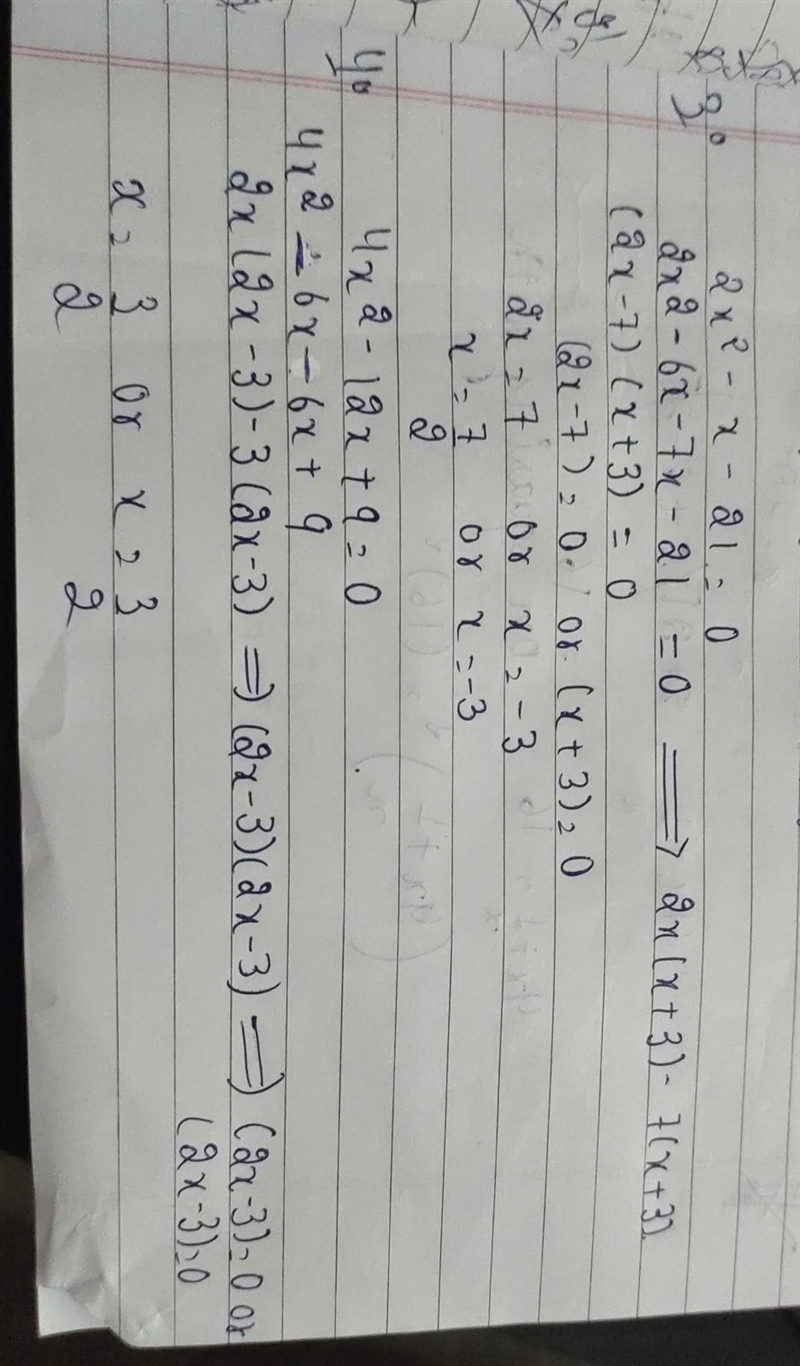 3. 2x² - x - 21 = 0
2x2 - 6x - 7x - 21 = 0 ⟹ 2x(x+3) - 7(x+3)
(2x-7) (x+3) = 0
(2x-7) = 0 or (x+3) = 0
2x = 7 or x = -3
x = 7/2 or x = -3
4. 4x2 - 12x + 9 = 0
4x2 - 6x - 6x + 9
2x(2x-3) - 3(2x-3) ⟹ (2x-3)(2x-3) ⟹ (2x-3) = 0 or
(2x-3) = 0
x = 3/2 or x = 3/2